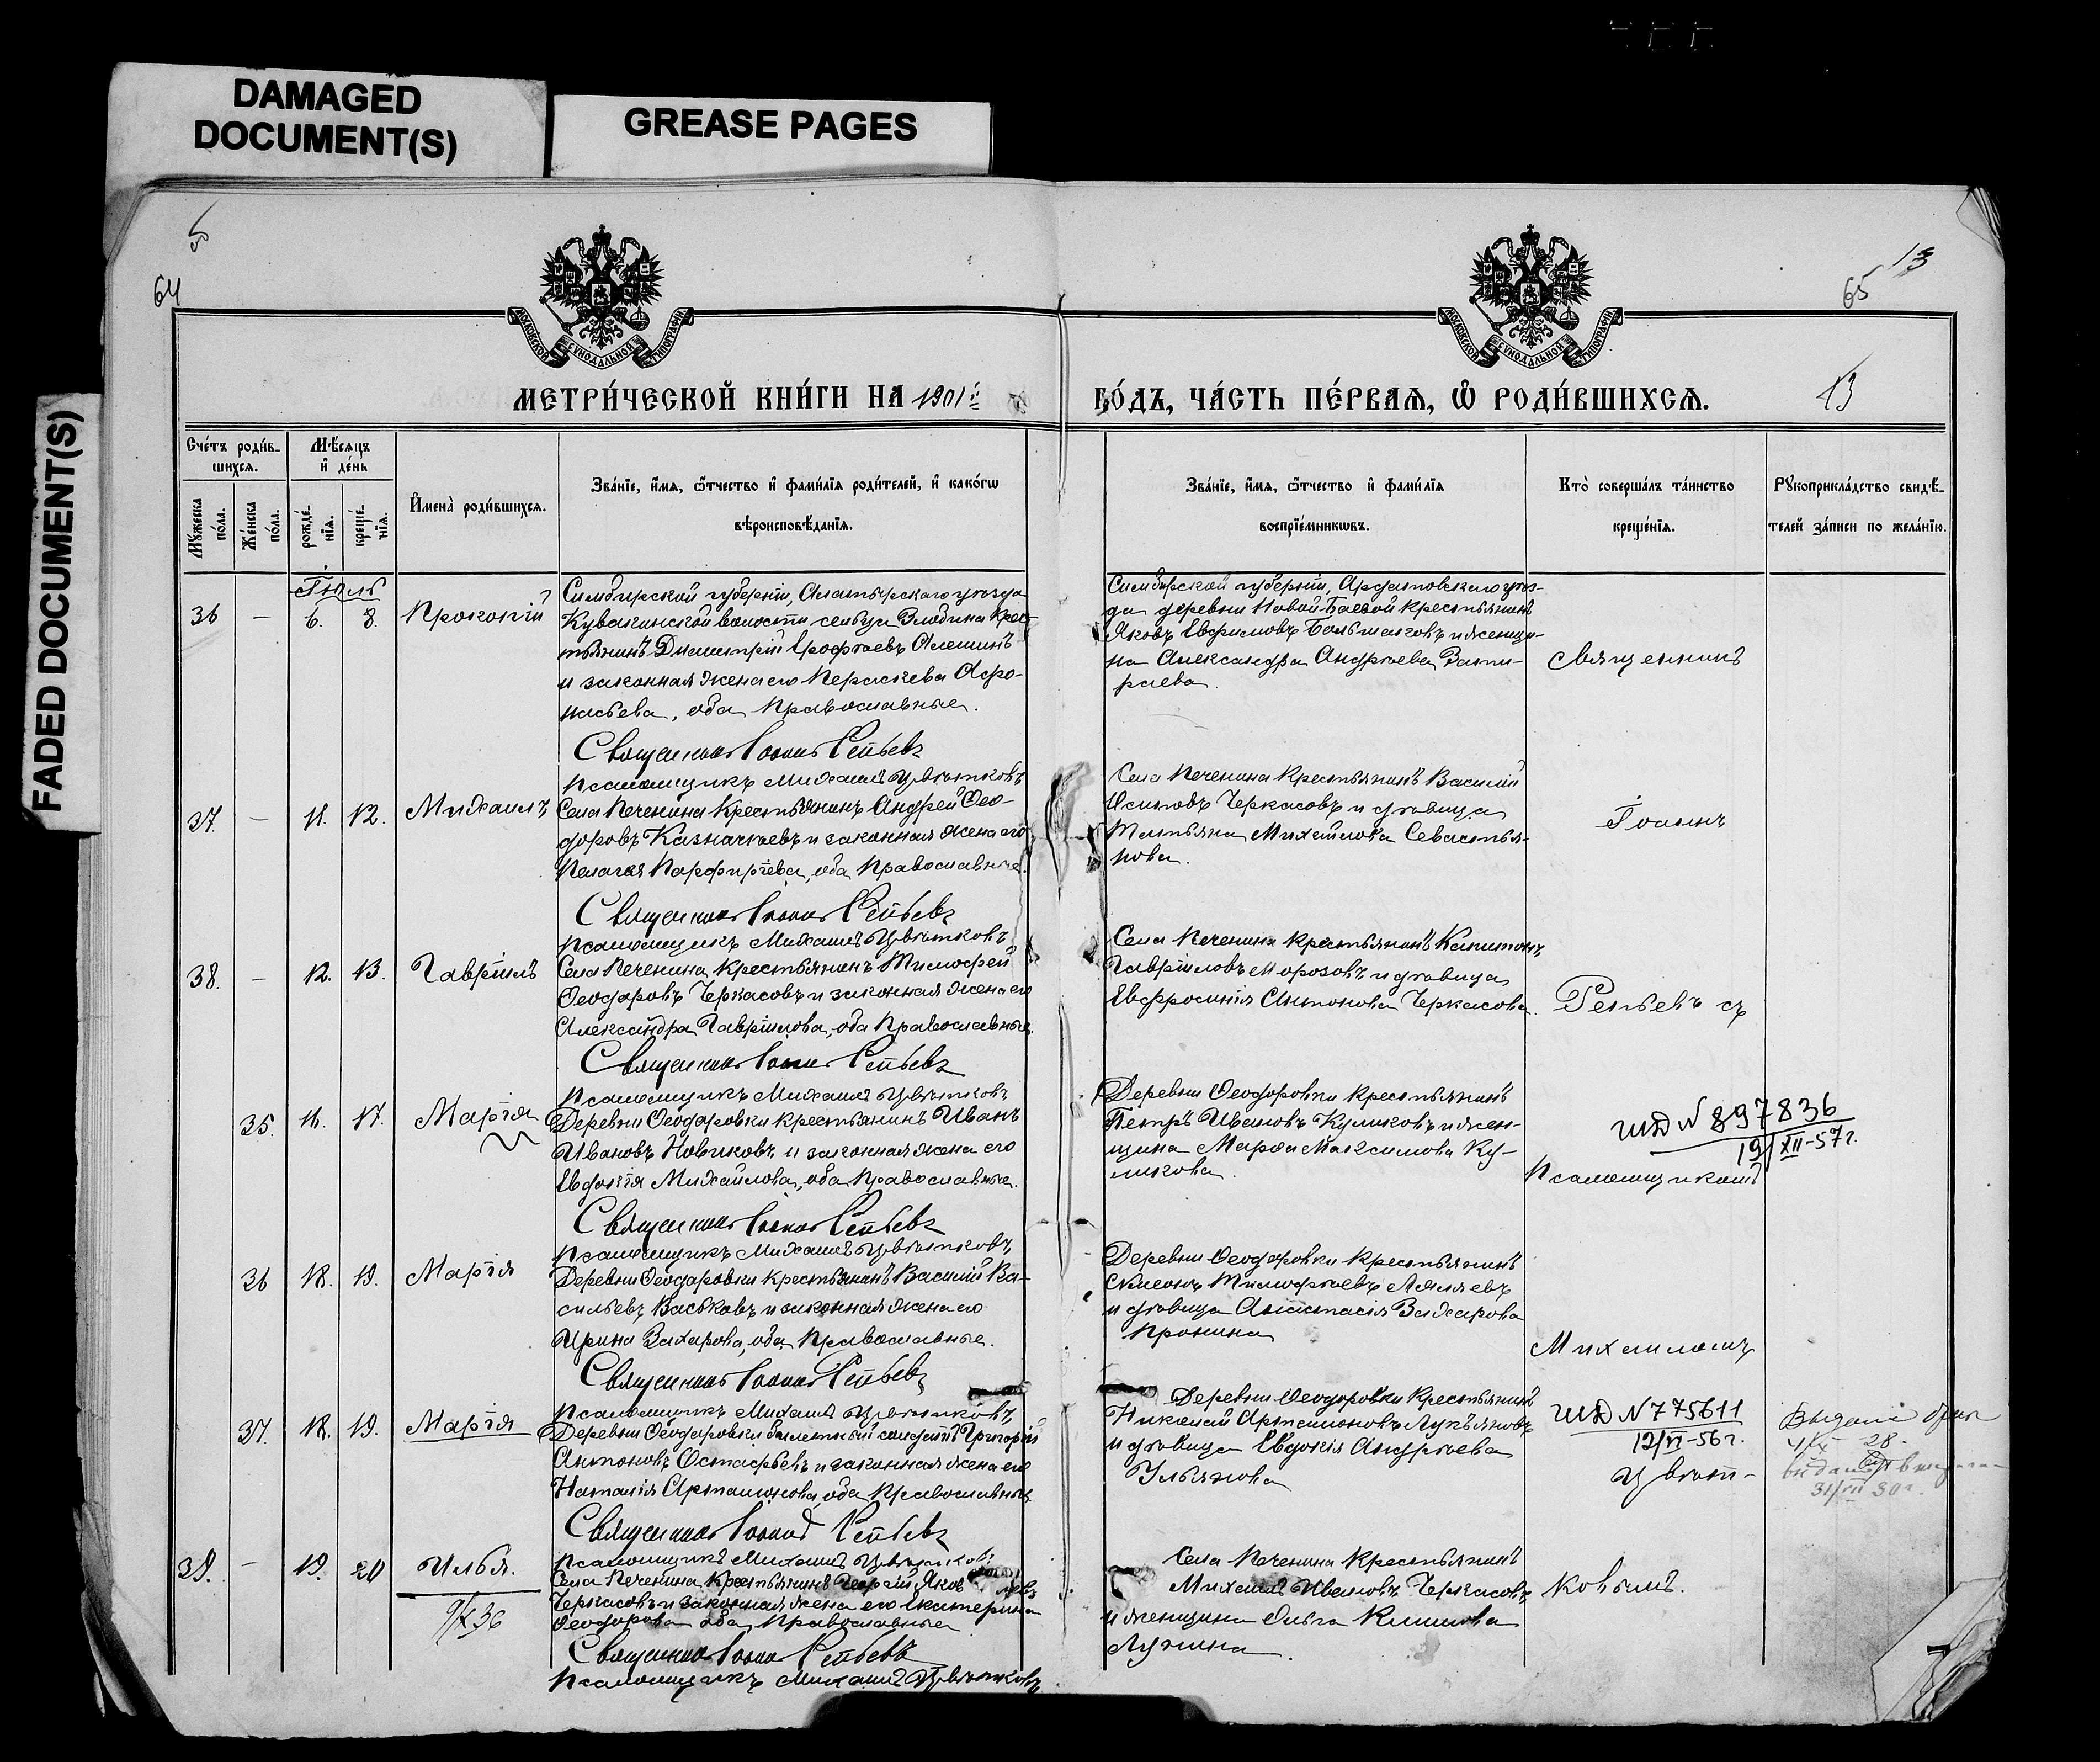 DAMAGED
DOCUMENT(S)
GREASE PAGES
FADED DOCUMENT(S)
64
65
13
МОСКОВСКОЙ СѴНОДАЛЬНОЙ ТИПОГРАФІИ
МОСКОВСКОЙ СѴНОДАЛЬНОЙ ТИПОГРАФІИ
МЕТРИ́ЧЕСКОЙ КНИ́ГИ НА 1901й
ГО́ДЪ, ЧА́СТЬ ПЕ́РВАѦ, Ѡ РОДИ́ВШИХСѦ.
13
Сче́тъ роди́в-
шихсѧ.
Мѣ́сѧцъ
и де́нь
Мꙋ́жеска по́ла.
Же́нска по́ла.
рожде́-
нїѧ.
креще́-
нїѧ.
И҆мена̀ роди́вшихсѧ.
Зва́нїе, и҆́мѧ, ѻ҆́тчество и҆ фами́лїѧ роди́телей, и҆ како́гѡ
вѣроисповѣ́данїѧ.
Зва́нїе, и҆́мѧ, ѻ҆́тчество и҆ фами́лїѧ
воспрїе́мникѡвъ.
Кто̀ соверша́лъ та́инство
креще́нїѧ.
Рꙋкоприкла́дство свидѣ́-
телей за́писи по жела́нїю.
Іюль
36 — 6. 8. Прокопій
Симбирской губерніи, Алатырскаго уѣзда
Кувакинской волости сельца Злобина Крес-
тьянинъ Димитрій Ерофѣевъ Алешинъ
и законная жена его Перасkева Афо-
насьева, оба Православные.
Священникъ Іоаннъ Репьевъ
Псаломщикъ Михаилъ Цвѣтковъ
Симбирской губерніи, Ардатовскаго уѣз-
да деревни Новой-Баевой крестьянинъ
Яковъ Евфимовъ Большаковъ и женщи-
на Александра Андреева
Священникъ
37. — 11. 12. Михаилъ
Села Печенина Крестьянинъ Андрей Ѳео-
доровъ Казначеевъ и законная жена его
Пелагея Парфиріева, оба Православные.
Священникъ Іоаннъ Репьевъ
Псаломщикъ Михаилъ Цвѣтковъ
Села Печенина Крестьянинъ Василій
Осиповъ Черкасовъ и дѣвица
Татьяна Михайлова Севастья-
нова.
Іоаннъ
38. — 12. 13. Гавріилъ
Села Печенина Крестьянинъ Тимофей
Ѳеодоровъ Черкасовъ и законная жена его
Александра Гавріилова, оба Православные.
Священникъ Іоаннъ Репьевъ
Псаломщикъ Михаилъ Цвѣтковъ
Села Печенина Крестьянинъ Капитонъ
Гавріиловъ Морозовъ и дѣвица
Евфросинія Антонова Черкасова.
Репьевъ съ
35. 16. 17. Марѳа
Деревни Ѳеодоровки Крестьянинъ Иванъ
Ивановъ Новиковъ и законная жена его
Евдокія Михайлова, оба Православные.
Священникъ Іоаннъ Репьевъ
Псаломщикъ Михаилъ Цвѣтковъ
Деревни Ѳеодоровки Крестьянинъ
Петръ Ивановъ Куликовъ и жен-
щина Марѳа Максимова Ку-
ликова.
N 897836
19/XII-57г.
Псаломщикомъ
36 18. 19. Марія
Деревни Ѳеодоровки Крестьянинъ Василій Ва-
сильевъ Васьковъ и законная жена его
Ирина Захарова, оба Православные.
Священникъ Іоаннъ Репьевъ
Псаломщикъ Михаилъ Цвѣтковъ
Деревни Ѳеодоровки Крестьянинъ
Симеонъ Тимофѣевъ
и дѣвица Анастасія Захарова
Пронина
Михаиломъ
37. 18. 19. Марія
Деревни Ѳеодоровки билетный солдатъ Григорій
Антоновъ Остафьевъ и законная жена его
Наталія Артамонова, оба Православные
Священникъ Іоаннъ Репьевъ
Псаломщикъ Михаилъ Цвѣтковъ
Деревни Ѳеодоровки Крестьянинъ
Николай Артамоновъ Лукьяновъ
и дѣвица Евдокія Андреева
Ульянова
N 775611
12/VI-56г.
Цвѣт-
28.
31/VII 30г.
39. — 19. 20 Илья.
9/X 36
Села Печенина Крестьянинъ Георгій
Черкасовъ и законная жена его Екатерина
Ѳеодорова оба Православные
Священникъ Іоаннъ Репьевъ
Псаломщикъ Михаилъ Цвѣтковъ
Села Печенина Крестьянинъ
Михаилъ Ивановъ Черкасовъ
и женщина Ольга Климова
Лунина.
ковымъ.